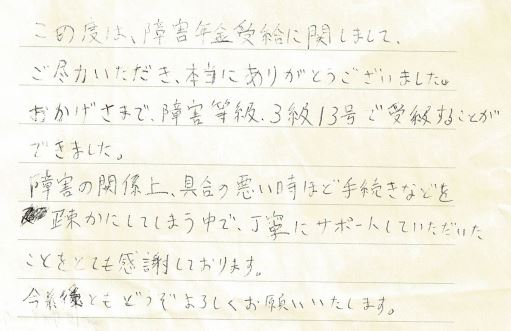 この度は、障害年金受給に関しまして、
ご尽力いただき、本当にありがとうございました。
おかげさまで、障害等級、3級13号ご受級することが
できました。
障害の関係上、具合の悪い時ほど手続きなどを
疎かにしてしまう中で、丁寧にサポートしていただいた
ことをとても感謝しております。
今後ともどうぞよろしくお願いいたします。